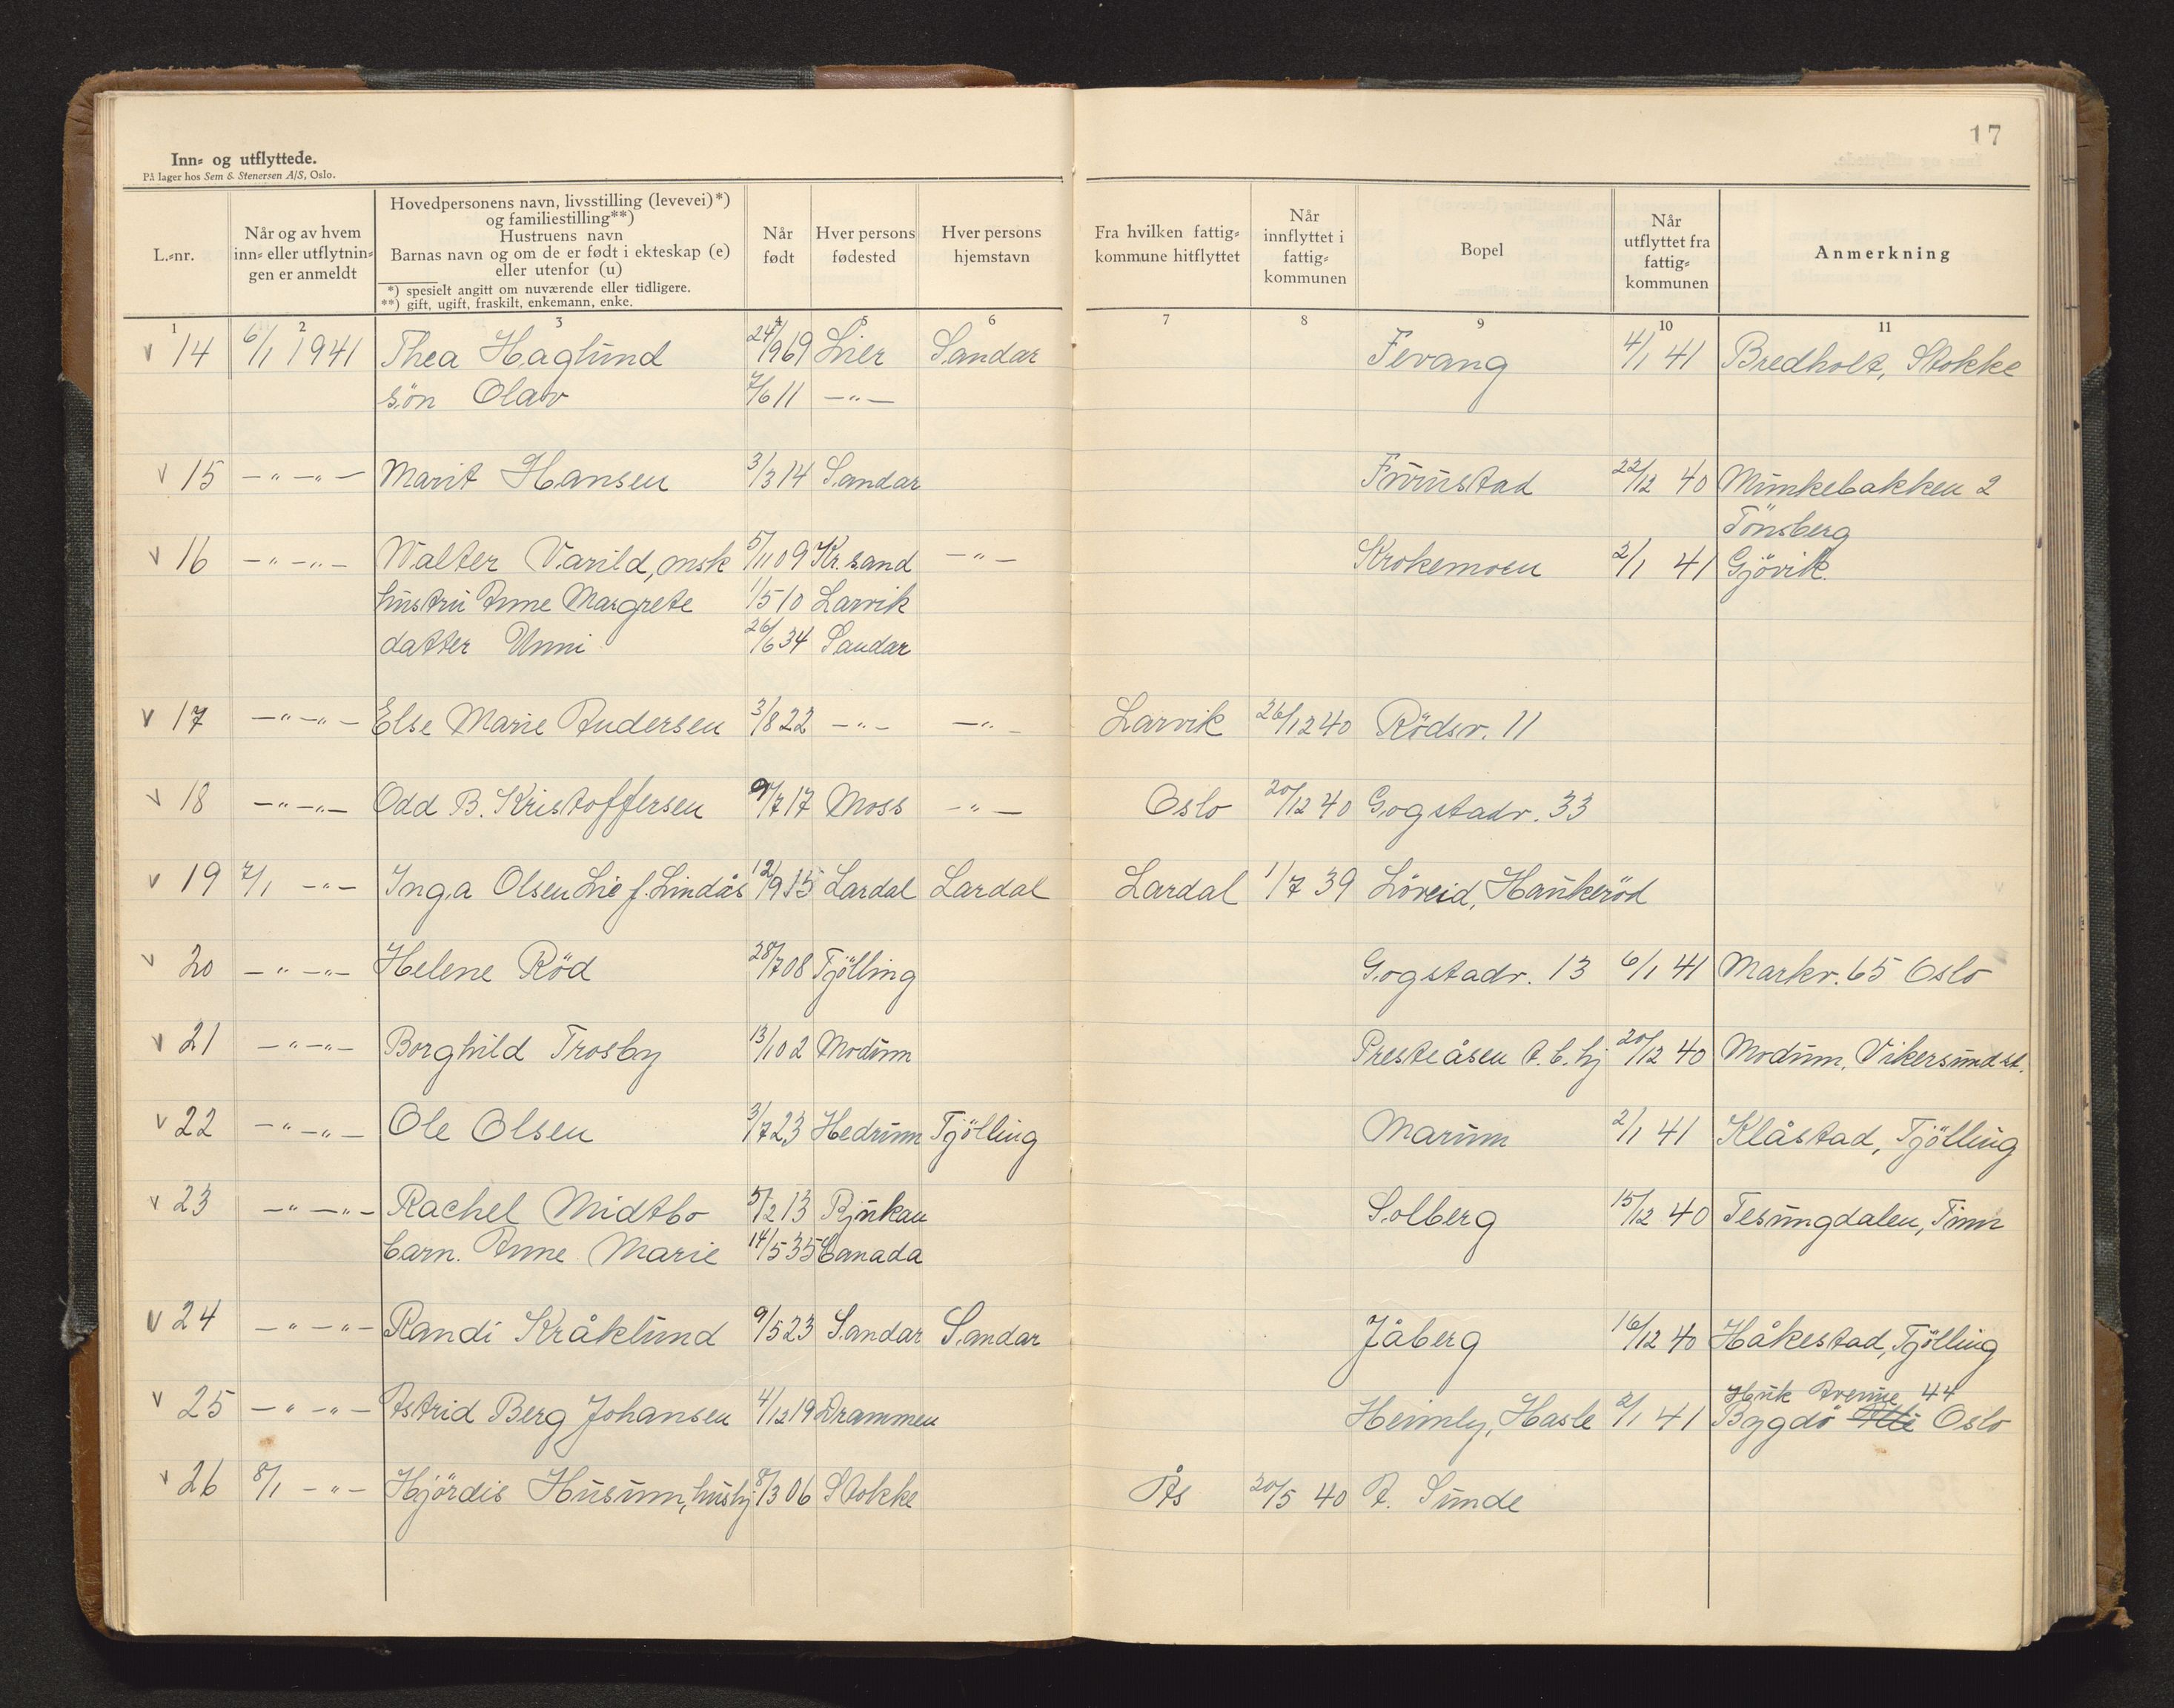 17
Inn- og utflyttede.
På lager hos Sem & Stenersen A/S, Oslo.
L.-nr.
Når og av hvem inn- eller utflytnin-gen er anmeldt
Hovedpersonens navn, livsstilling (levevei)*) og familiestilling**)
Hustruens navn
Barnas navn og om de er født i ekteskap (e) eller utenfor (u)
*) spesielt angitt om nuværende eller tidligere.
**) gift, ugift, fraskilt, enkemann, enke.
Når født
Hver persons fødested
Hver persons hjemstavn
Fra hvilken fattig-kommune hitflyttet
Når innflyttet i fattig-kommunen
Bopel
Når utflyttet fra fattig-kommunen
Anmerkning
1 2 3 4 5 6 7 8 9 10 11
v 14 6/1 1941 Thea Haglund 24/9 69 Lier Sandar Fevang 4/1 41 Bredholt, Stokke
søn Olav 7/6 11 -"-
v 15 -"- -"- Marit Hansen 3/3 14 Sandar Furustad 22/12 40 Munkebakken 2
Tönsberg
v 16 -"- -"- Walter Varild, msk 5/11 09 Kr.sand -"- Krokemoen 2/1 41 Gjövik.
hustru Anne Margrete 1/5 10 Larvik
datter Unni 26/6 34 Sandar
v 17 -"- -"- Else Marie Andersen 3/8 22 -"- -"- Larvik 26/12 40 Rödsv. 11
v 18 -"- -"- Odd B. Kristoffersen 9/7 17 Moss -"- Oslo 20/12 40 Gogstadv. 33
v 19 7/1 -"- Inga Olsen Lie f. Lindås 12/9 15 Lardal Lardal Lardal 1/7 39 Löveid, Haukeröd
v 20 -"- -"- Helene Röd 28/7 08 Tjölling Gogstadv. 13 6/1 41 Markv. 65 Oslo
v 21 -"- -"- Borghild Trosby 13/10 2 Modum Presteåsen t.b.hj 20/12 40 Modum, Vikersund st.
v 22 -"- -"- Ole Olsen 3/7 23 Hedrum Tjölling Marum 2/1 41 Klåstad, Tjölling
v 23 -"- -"- Rachel Midtbo 5/2 13 Rjukan Solberg 15/12 40 Tesungdalen, Tinn
barn. Anne Marie 14/5 35 Canada
v 24 -"- -"- Randi Kråklund 9/5 23 Sandar Sandar Jåberg 16/12 40 Håkestad, Tjölling
v 25 -"- -"- Astrid Berg Johansen 4/12 19 Drammen Heimly, Hasle 2/1 41 Bygdö Oslo
Avenue 44
v 26 8/1 -"- Hjördis Husum, hushj 8/3 06 Stokke Ås 20/5 40 A. Sunde